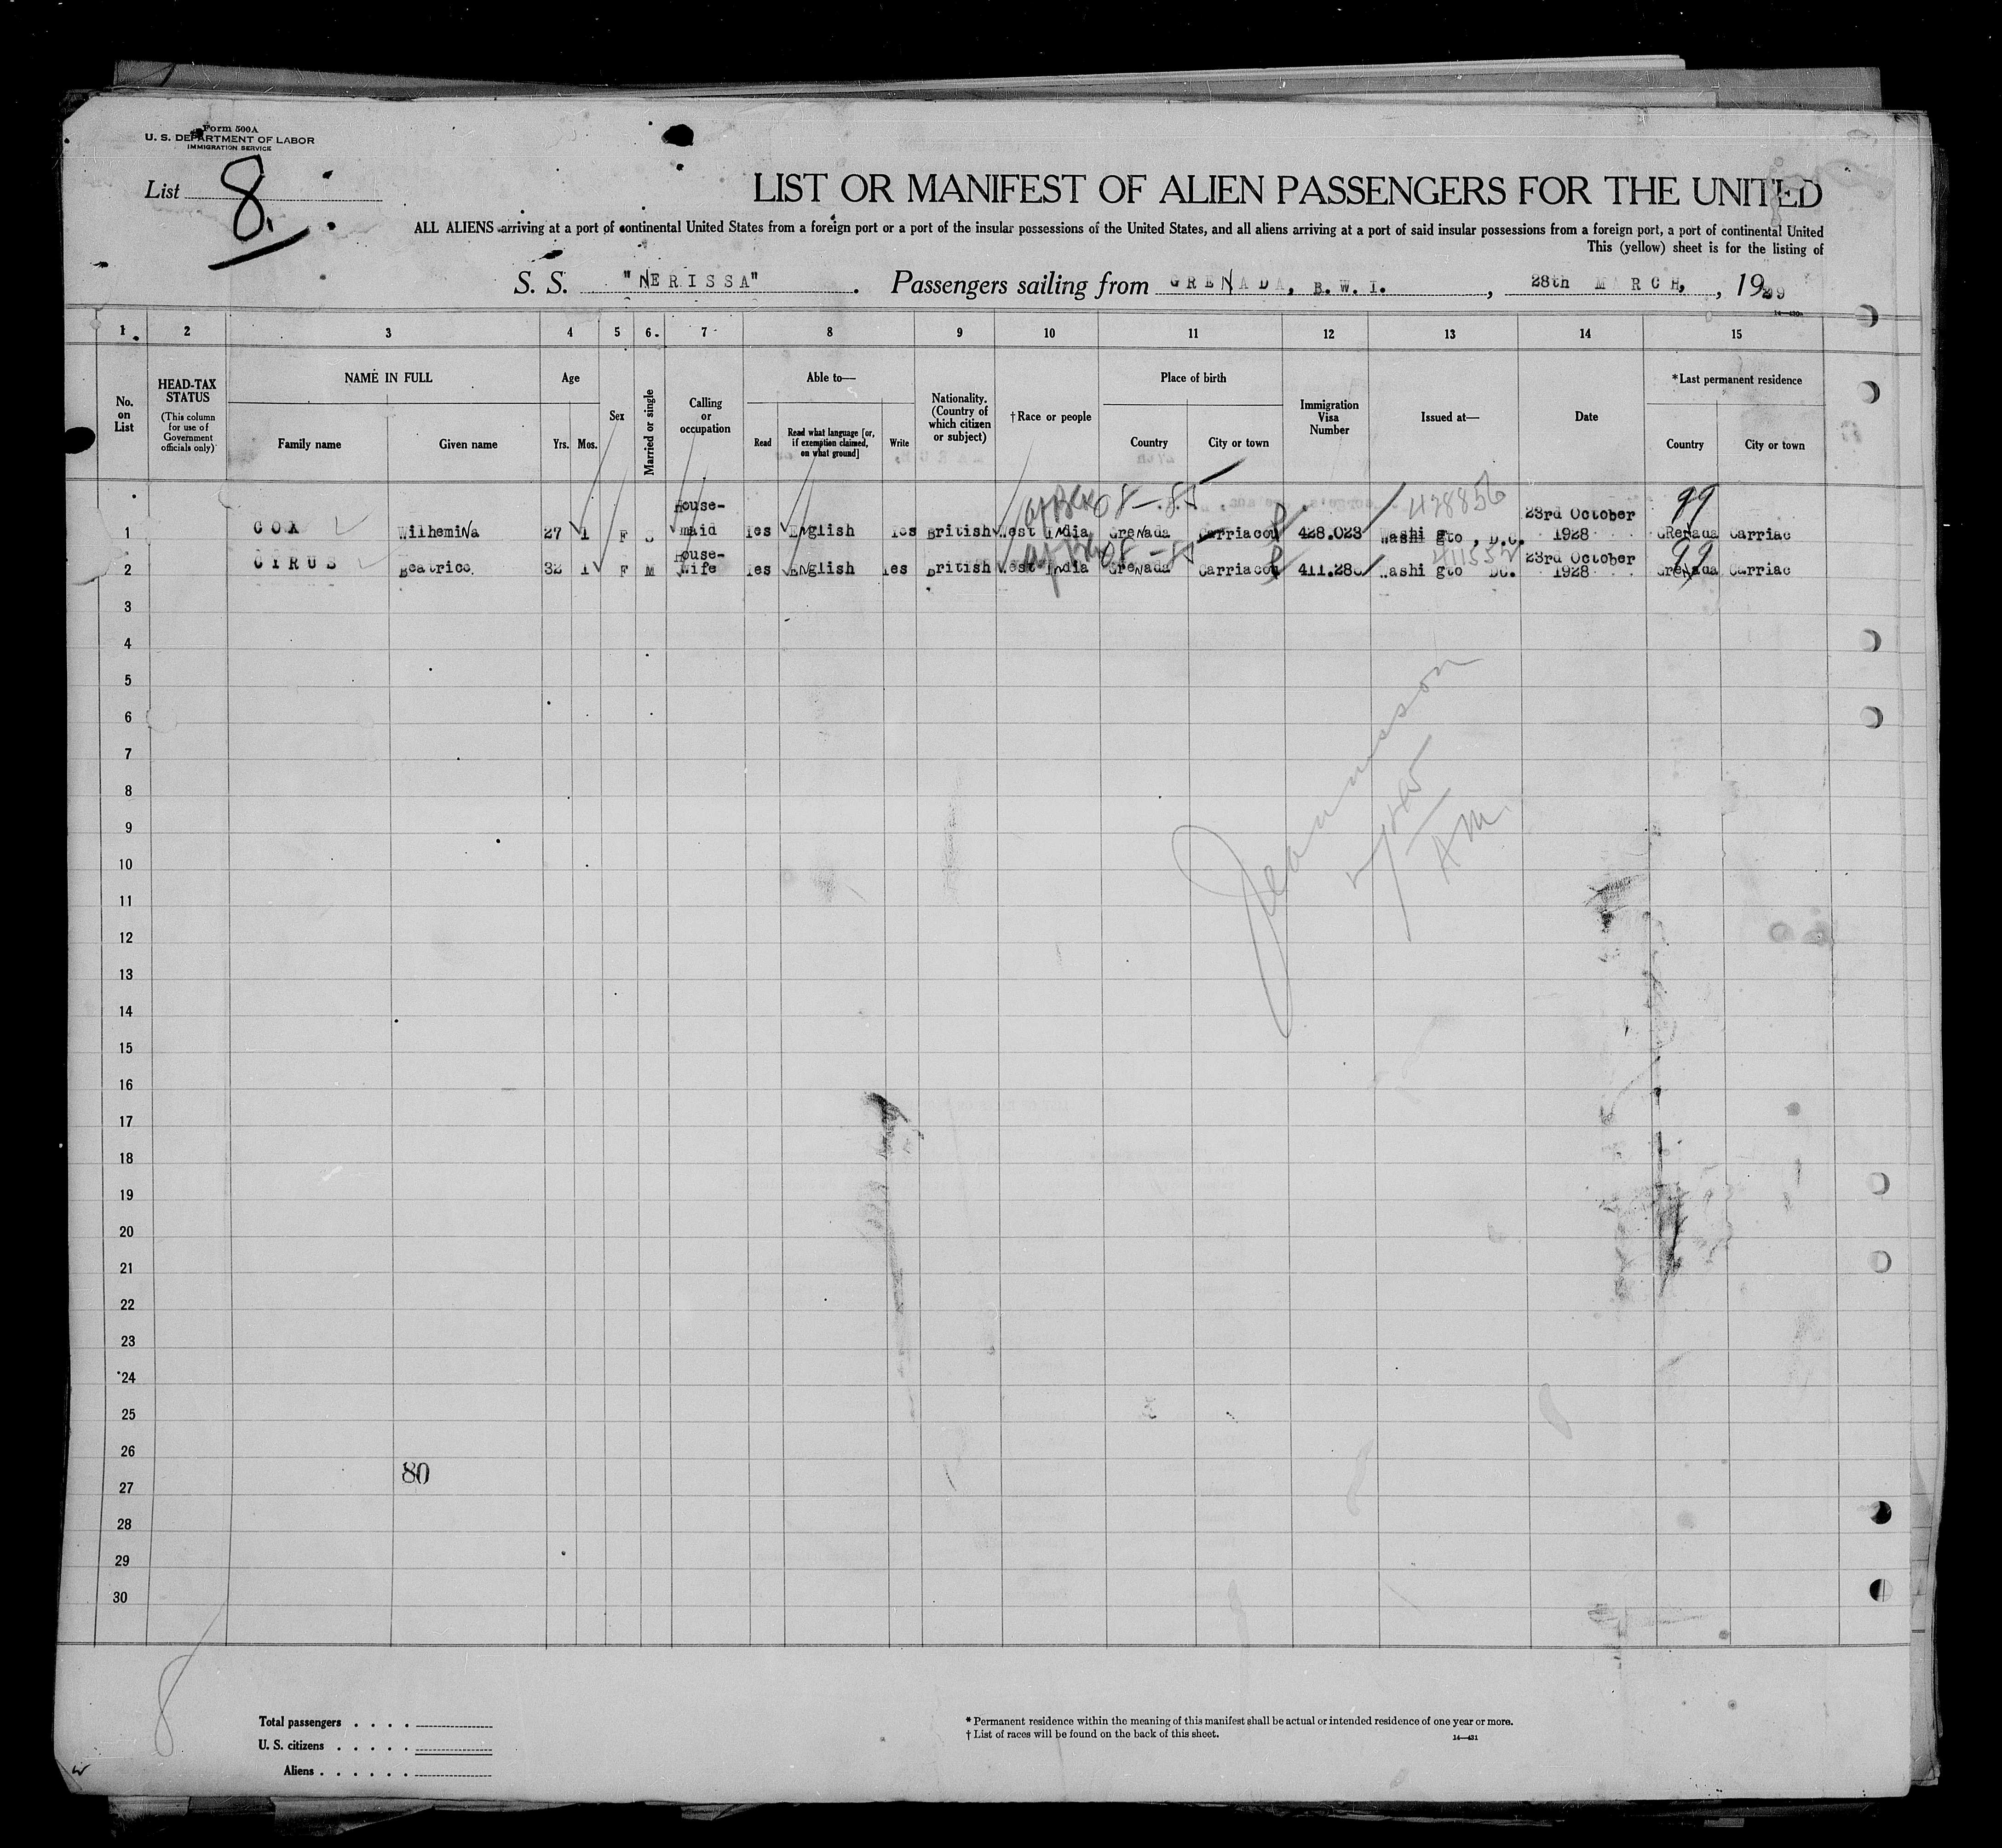 Form 500A
U. S. DEPARTMENT OF LABOR
IMMIGRATION SERVICE
List 8.
LIST OR MANIFEST OF ALIEN PASSENGERS FOR THE UNITED
ALL ALIENS arriving at a port of continental United States from a foreign port or a port of the insular possessions of the United States, and all aliens arriving at a port of said insular possessions from a foreign port, a port of continental United
This (yellow) sheet is for the listing of
S. S. "NERISSA" . Passengers sailing from GRENADA, B. W. I. , 28th M RCH, , 1929
14—430
1 2 3 4 5 6 7 8 9 10 11 12 13 14 15
No. on List
HEAD-TAX STATUS
(This column for use of Government officials only)
NAME IN FULL
Family name Given name
Age
Yrs. Mos.
Sex
Married or single
Calling or occupation
Able to—
Read Read what language [or, if exemption claimed, on what ground] Write
Nationality. (Country of which citizen or subject)
† Race or people
Place of birth
Country City or town
Immigration Visa Number
Issued at—
Date
* Last permanent residence
Country City or town
428856 99
1 COX WilhemiNa 27 1 F S House-maid Yes ENglish Yes British West INdia GreNada Carriacou 428.023 Washi gto , D.C. 23rd October 1928 GReNada Carriac
99
2 CIRUS Beatrice 32 1 F M House-Wife Yes ENglish Yes British West INdia GreNada Carriacou Washi gto DC. 23rd October 1928 GreNada Carriac
3
4
5
6
7
8
9
10
11
12
13
14
15
16
17
18
19
20
21
22
23
24
25
26
80
27
28
29
30
8
Total passengers . . . .
U. S. citizens . . . . .
Aliens . . . . . .
* Permanent residence within the meaning of this manifest shall be actual or intended residence of one year or more.
† List of races will be found on the back of this sheet.
14—431